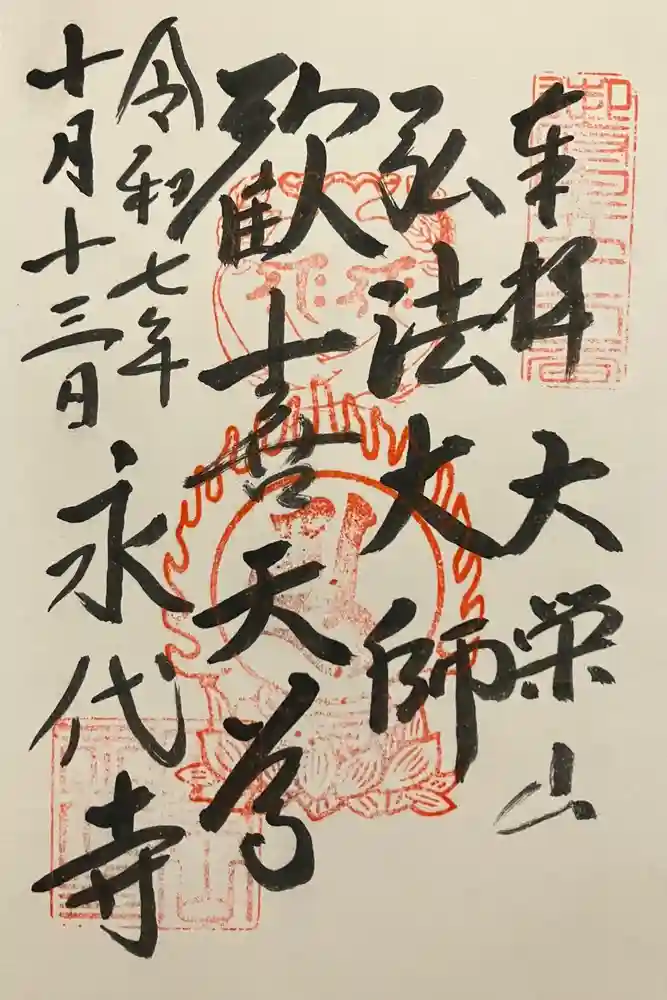 奉拝 大栄山
弘法大師
歓喜天尊
令和七年
十月十三日 永代寺